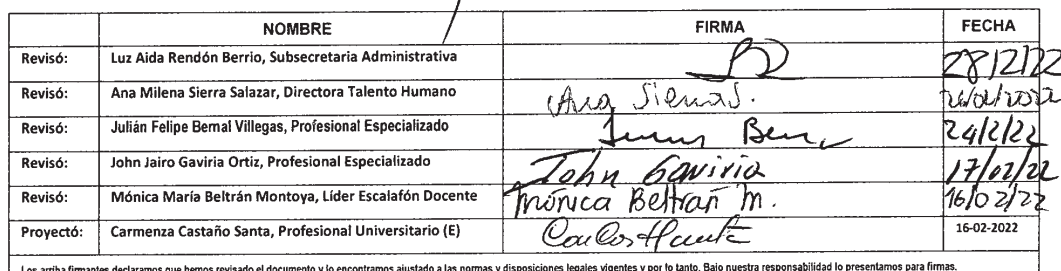 NOMBRE FIRMA FECHA
Revisó: Luz Aida Rendón Berrio, Subsecretaria Administrativa 28/2/22
Revisó: Ana Milena Sierra Salazar, Directora Talento Humano Ana Sierra S.
Revisó: Julián Felipe Bernal Villegas, Profesional Especializado 24/2/22
Revisó: John Jairo Gaviria Ortiz, Profesional Especializado John Gaviria 17/02/22
Revisó: Mónica María Beltrán Montoya, Líder Escalafón Docente Mónica Beltrán M. 16/02/22
Proyectó: Carmenza Castaño Santa, Profesional Universitario (E) 16-02-2022
Los arriba firmantes declaramos que hemos revisado el documento y lo encontramos ajustado a las normas y disposiciones legales vigentes y por lo tanto. Bajo nuestra responsabilidad lo presentamos para firmas.